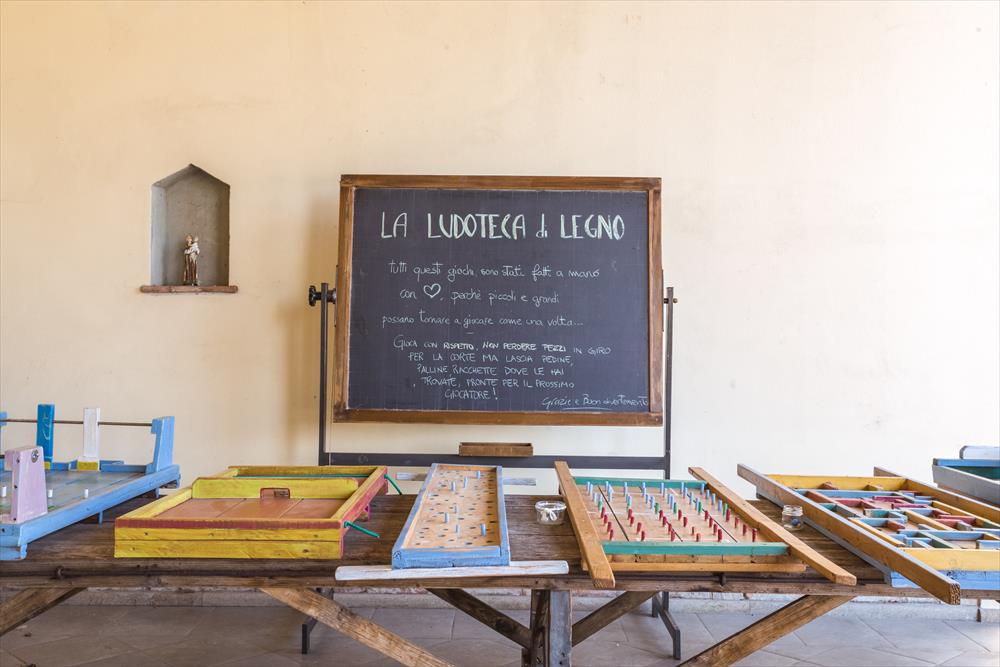 LA LUDOTECA di LEGNO
tutti questi giochi, sono stati fatti a mano
con ♡, perchè piccoli e grandi
possano tornare a giocare come una volta...
GIOCA CON RISPETTO, NON PERDERE PEZZI IN GIRO
PER LA CORTE MA LASCIA PEDINE,
PALLINE RACCHETTE DOVE LE HAI
TROVATE, PRONTE PER IL PROSSIMO
GIOCATORE!
Grazie e Buon divertimento